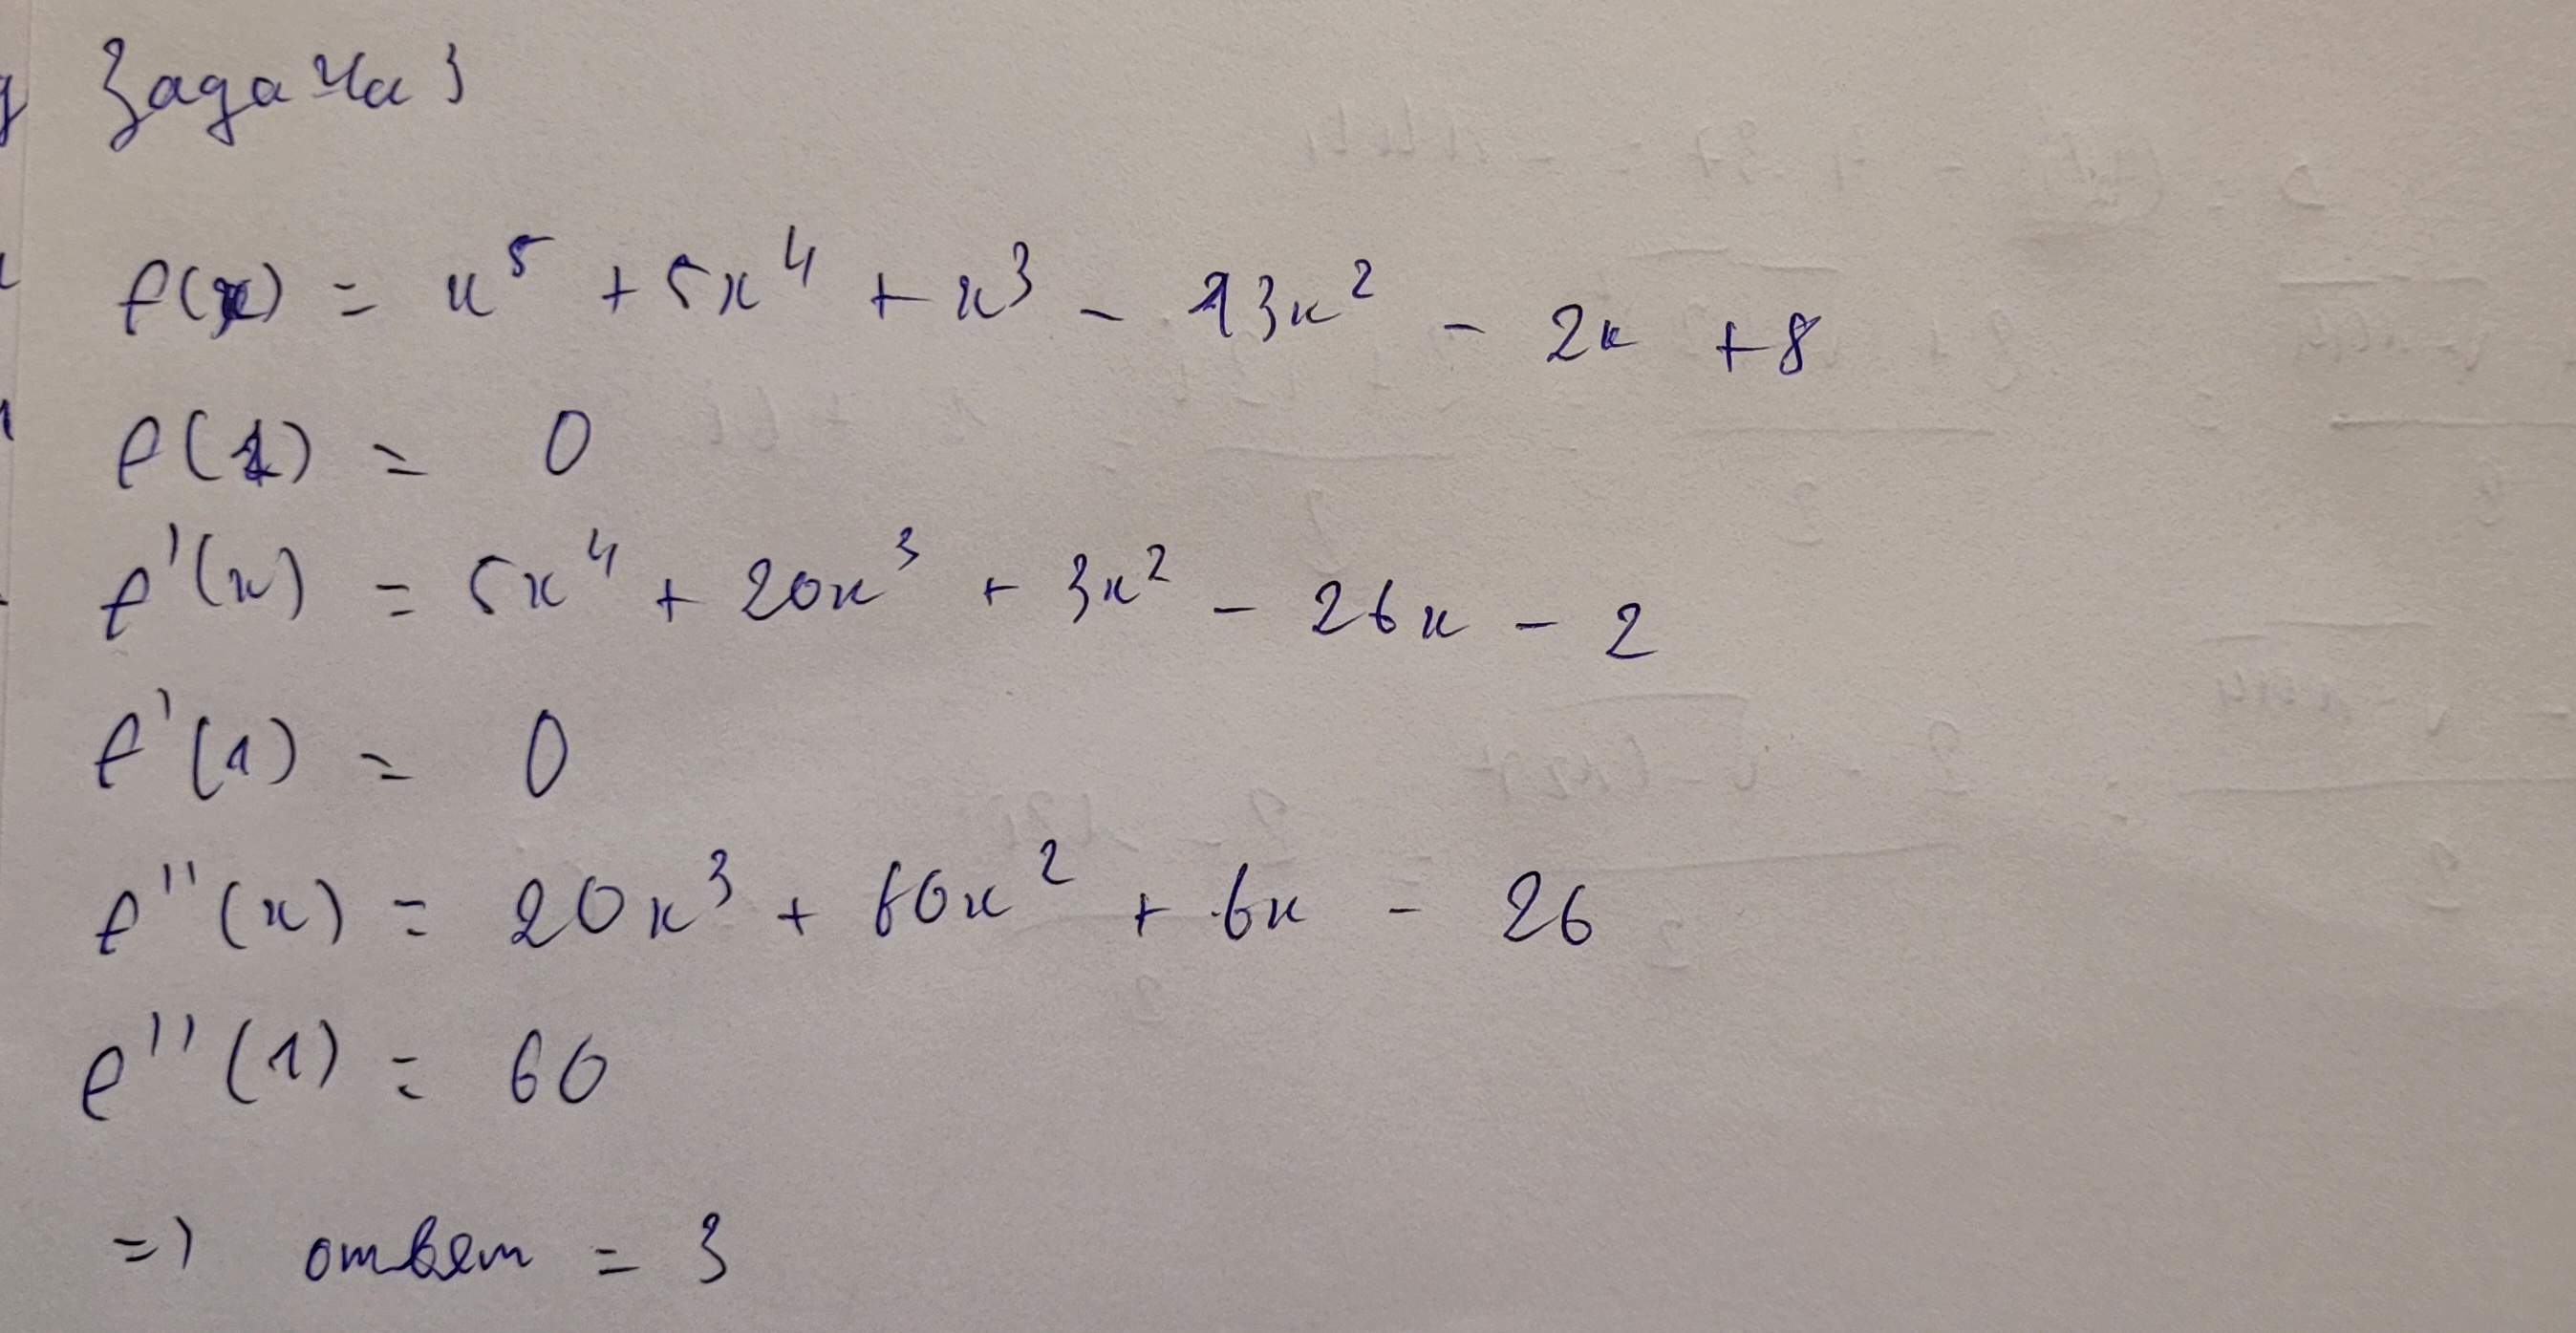 Задача 3
f(x) = x⁵ + 5x⁴ + x³ - 13x² - 2x + 8
f(1) = 0
f'(x) = 5x⁴ + 20x³ + 3x² - 26x - 2
f'(1) = 0
f''(x) = 20x³ + 60x² + 6x - 26
f''(1) = 60
=> ответ = 3